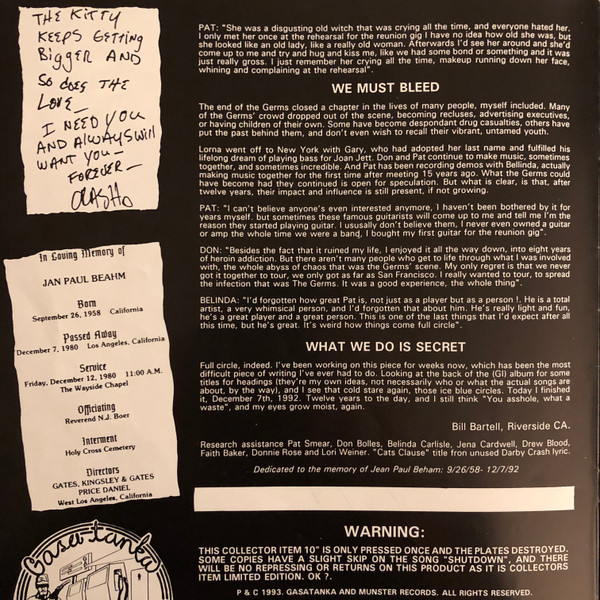 THE KITTY
KEEPS GETTING
BIGGER AND
SO DOES THE
LOVE
I NEED YOU
AND ALWAYS WILL
WANT YOU—
FOREVER—
In Loving Memory of
JAN PAUL BEAHM
Born
September 26, 1958 California
Passed Away
December 7, 1980 Los Angeles, California
Service
Friday, December 12, 1980 11:00 A.M.
The Wayside Chapel
Officiating
Reverend N.J. Boer
Interment
Holy Cross Cemetery
Directors
GATES, KINGSLEY & GATES
PRICE DANIEL
West Los Angeles, California
Gasatanka
PAT: "She was a disgusting old witch that was crying all the time, and everyone hated her.
I only met her once at the rehearsal for the reunion gig I have no idea how old she was, but
she looked like an old lady, like a really old woman. Afterwards I'd see her around and she'd
come up to me and try and hug and kiss me, like we had some bond or something and it was
just really gross. I just remember her crying all the time, makeup running down her face,
whining and complaining at the rehearsal".
WE MUST BLEED
The end of the Germs closed a chapter in the lives of many people, myself included. Many
of the Germs' crowd dropped out of the scene, becoming recluses, advertising executives,
or having children of their own. Some have become despondant drug casualties, others have
put the past behind them, and don't even wish to recall their vibrant, untamed youth.
Lorna went off to New York with Gary, who had adopted her last name and fulfilled his
lifelong dream of playing bass for Joan Jett. Don and Pat continue to make music, sometimes
together, and sometimes incredible. And Pat has been recording demos with Bellinda, actually
making music together for the first time after meeting 15 years ago. What the Germs could
have become had they continued is open for speculation. But what is clear, is that, after
twelve years, their impact and influence is still present, if not growing.
PAT: "I can't believe anyone's even interested anymore, I haven't been bothered by it for
years myself. but sometimes these famous guitarists will come up to me and tell me I'm the
reason they started playing guitar. I ususally don't believe them, I never even owned a guitar
or amp the whole time we were a band, I bought my first guitar for the reunion gig".
DON: "Besides the fact that it ruined my life, I enjoyed it all the way down, into eight years
of heroin addiction. But there aren't many people who get to life through what I was involved
with, the whole abyss of chaos that was the Germs' scene. My only regret is that we never
got it together to tour, we only got as far as San Francisco. I really wanted to tour, to spread
the infection that was The Germs. It was a good experience, the whole thing".
BELINDA: "I'd forgotten how great Pat is, not just as a player but as a person !. He is a total
artist, a very whimsical person, and I'd forgotten that about him. He's really light and fun,
he's a great player and a great person. This is one of the last things that I'd expect after all
this time, but he's great. It's weird how things come full circle".
WHAT WE DO IS SECRET
Full circle, indeed. I've been working on this piece for weeks now, which has been the most
difficult piece of writing I've ever had to do. Looking at the back of the (GI) album for some
titles for headings (they're my own ideas, not necessarily who or what the actual songs are
about, by the way), and I see that cold stare again, those ice blue circles. Today I finished
it, December 7th, 1992. Twelve years to the day, and I still think "You asshole, what a
waste", and my eyes grow moist, again.
Bill Bartell, Riverside CA.
Research assistance Pat Smear, Don Bolles, Belinda Carlisle, Jena Cardwell, Drew Blood,
Faith Baker, Donnie Rose and Lori Weiner. "Cats Clause" title fron unused Darby Crash lyric.
Dedicated to the memory of Jean Paul Beham: 9/26/58- 12/7/92
WARNING:
THIS COLLECTOR ITEM 10" IS ONLY PRESSED ONCE AND THE PLATES DESTROYED.
SOME COPIES HAVE A SLIGHT SKIP ON THE SONG "SHUTDOWN", AND THERE
WILL BE NO REPRESSING OR RETURNS ON THIS PRODUCT AS IT IS COLLECTORS
ITEM LIMITED EDITION. OK ?.
P & C 1993. GASATANKA AND MUNSTER RECORDS. ALL RIGHTS RESERVED.